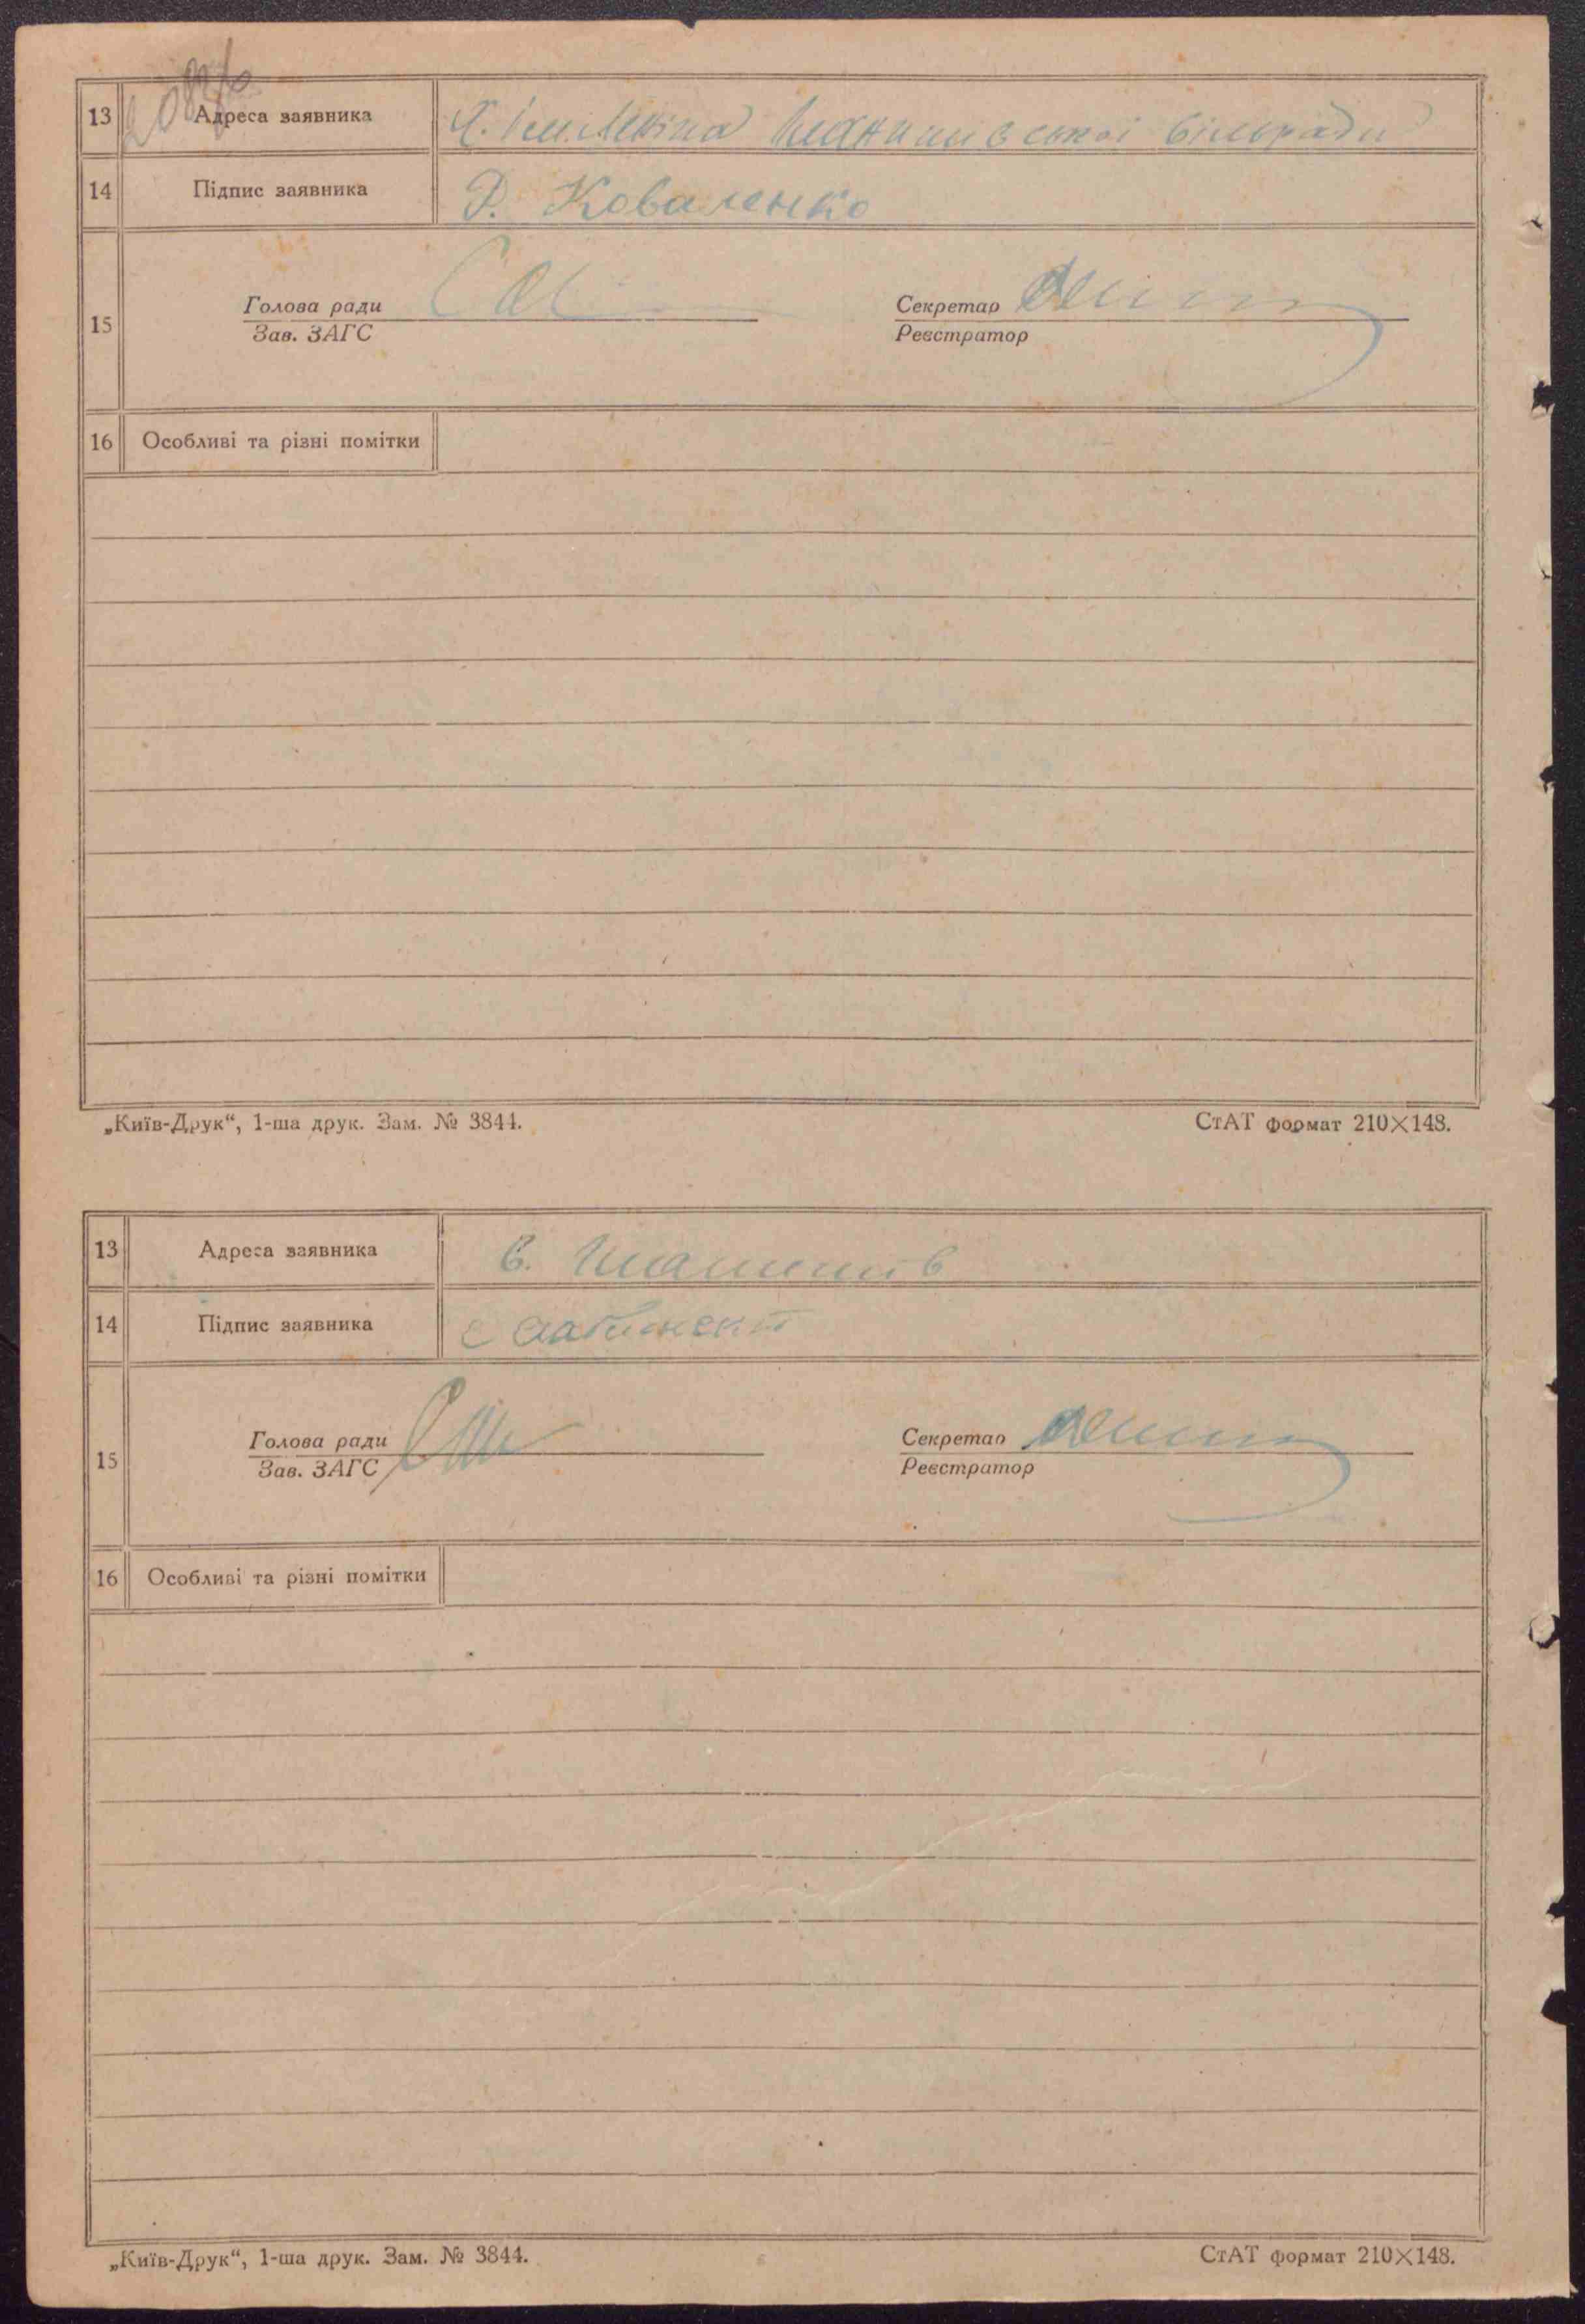 13 Адреса заявника Х. ім. Леніна сільради
14 Підпис заявника Р. Коваленко
15 Голова ради Секретар
Зав. ЗАГС Реєстратор
16 Особливі та різні помітки
„Київ-Друк“, 1-ша друк. Зам. № 3844. СтАТ формат 210×148.
13 Адреса заявника с.
14 Підпис заявника
15 Голова ради Секретар
Зав. ЗАГС Реєстратор
16 Особливі та різні помітки
„Київ-Друк“, 1-ша друк. Зам. № 3844. СтАТ формат 210×148.